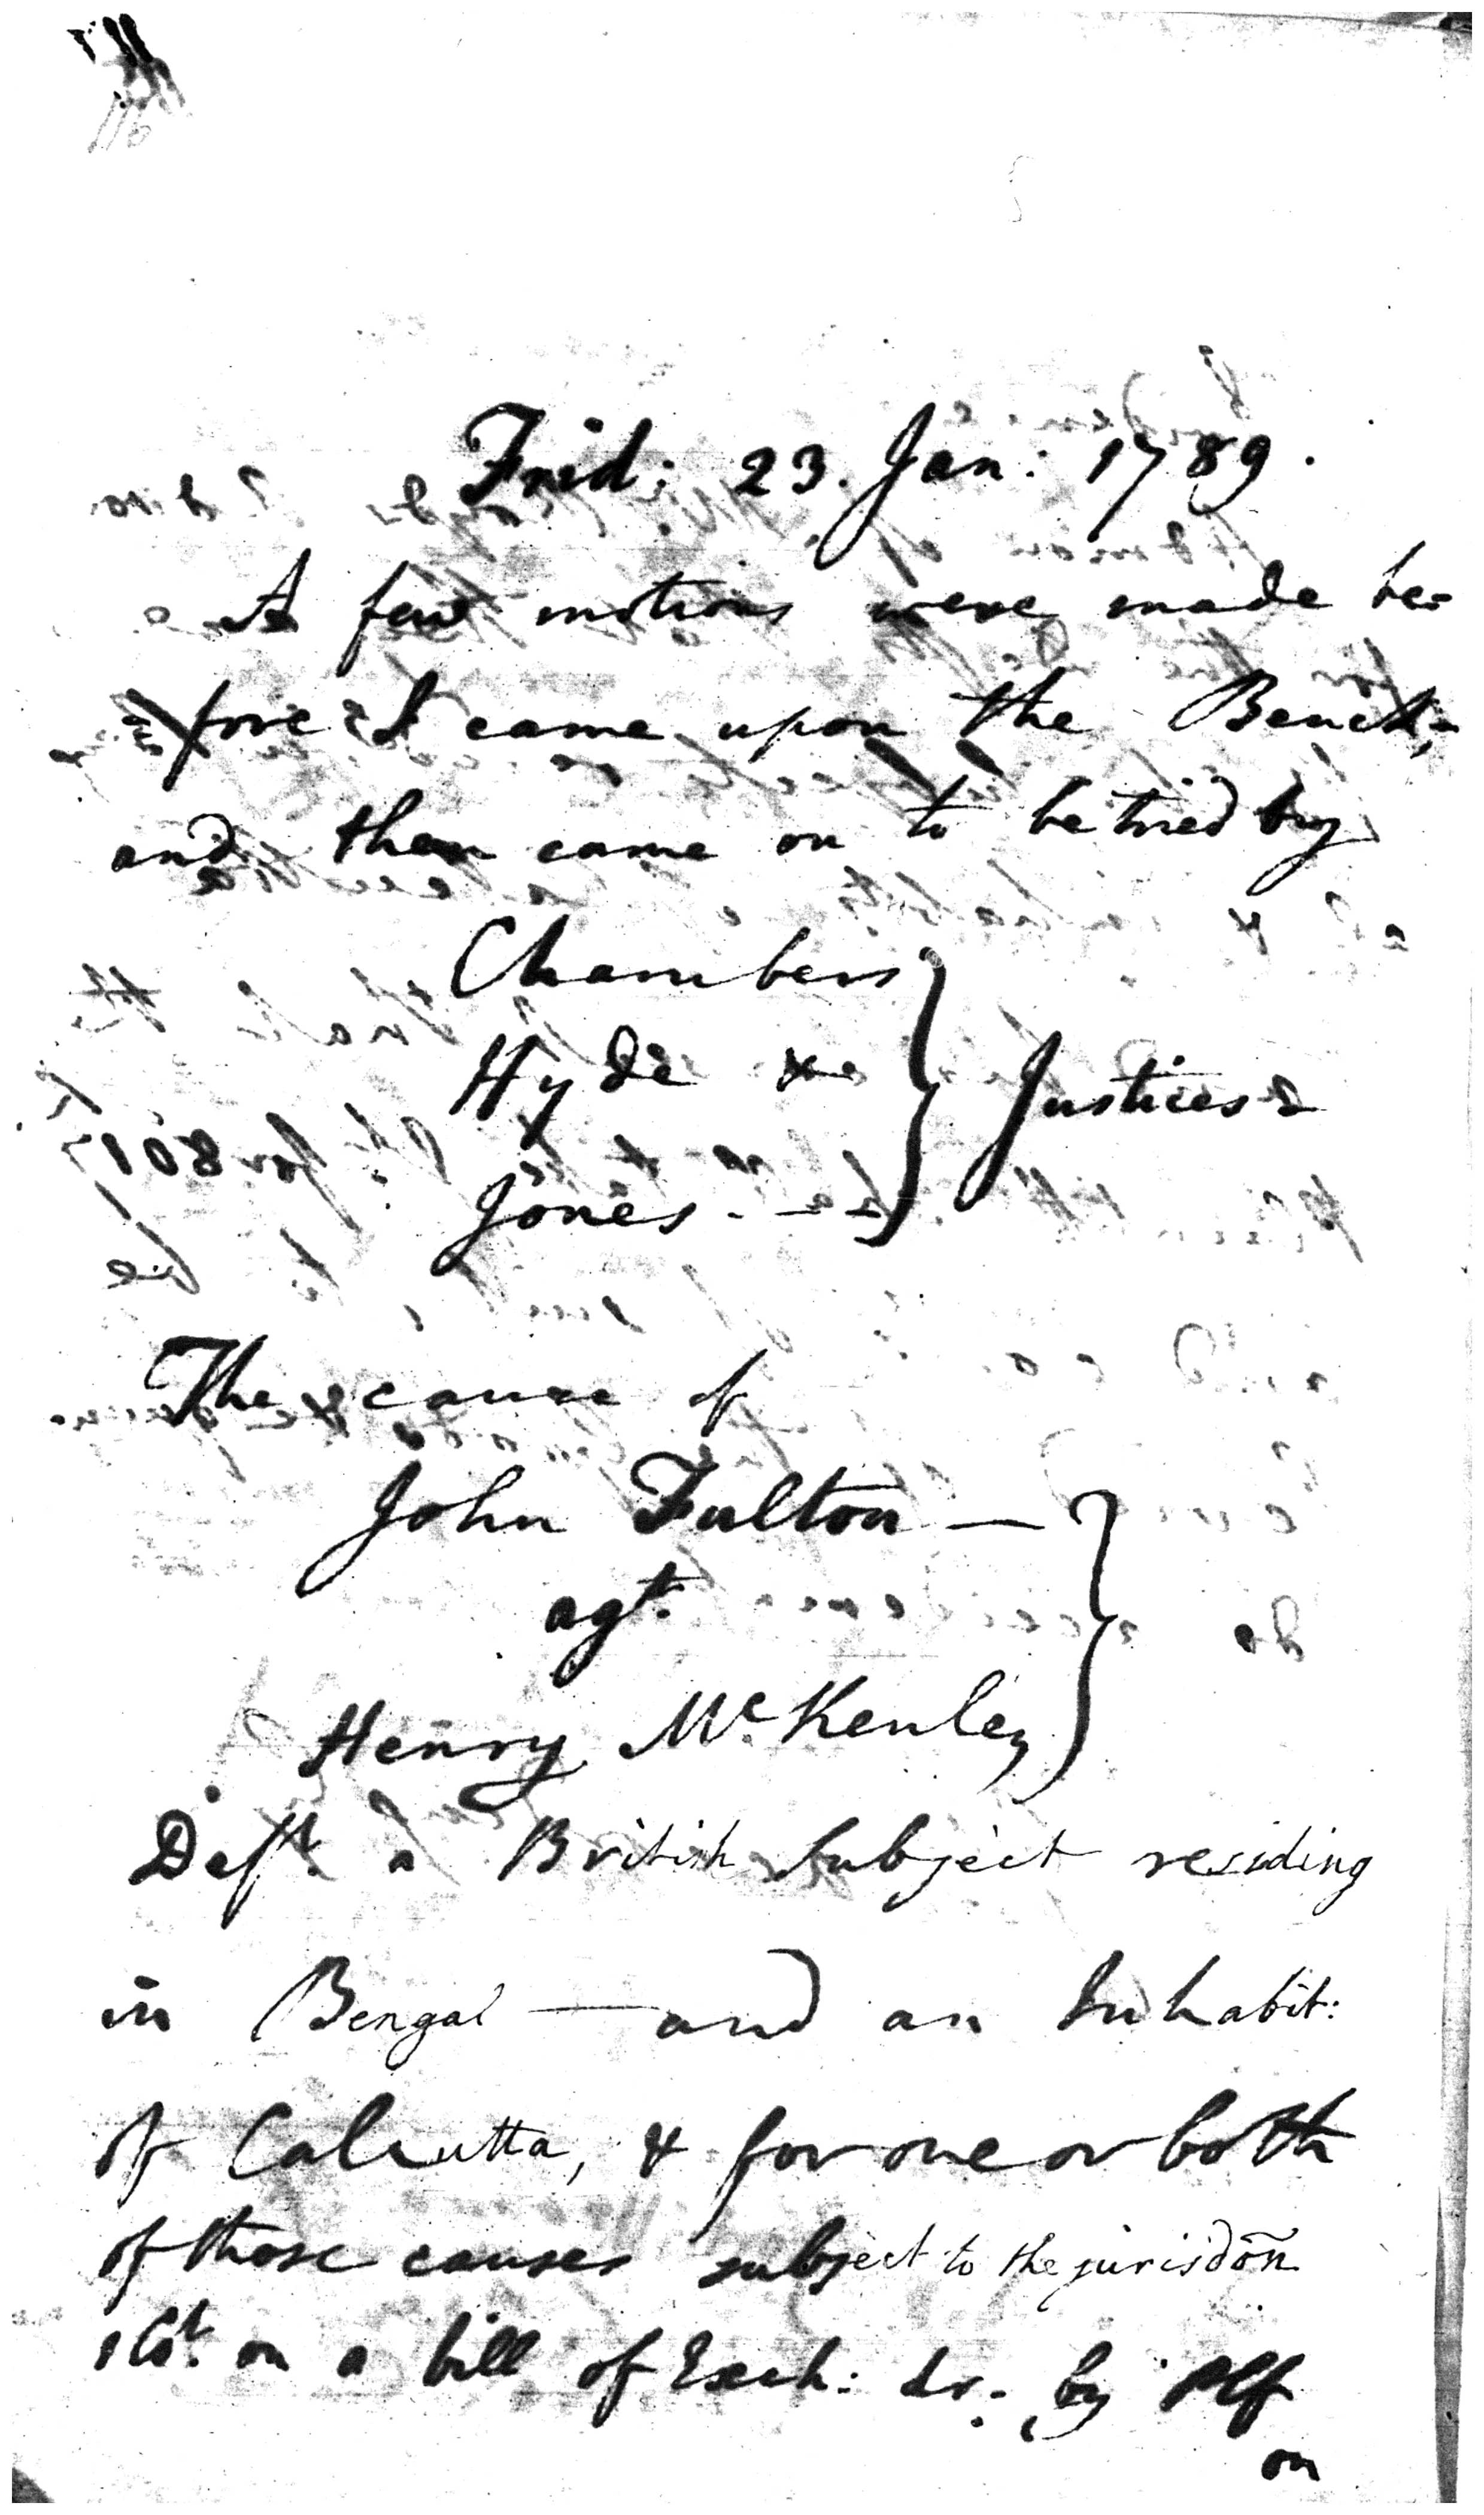 Frid: 23. Jan: 1789.
A few motions were made be=
=fore I came upon the Bench,
and then came on to be tried by
Chambers
Hyde &
Jones - - -
Justices
The cause of
John Fulton —
agt.
Henry McKenley
Deft. a British Subject residing
in Bengal — and an Inhabit:
of Calcutta, & for one or both
of those causes subject to the jurisdōn
on a bill of Exch: dr. by Plf
on